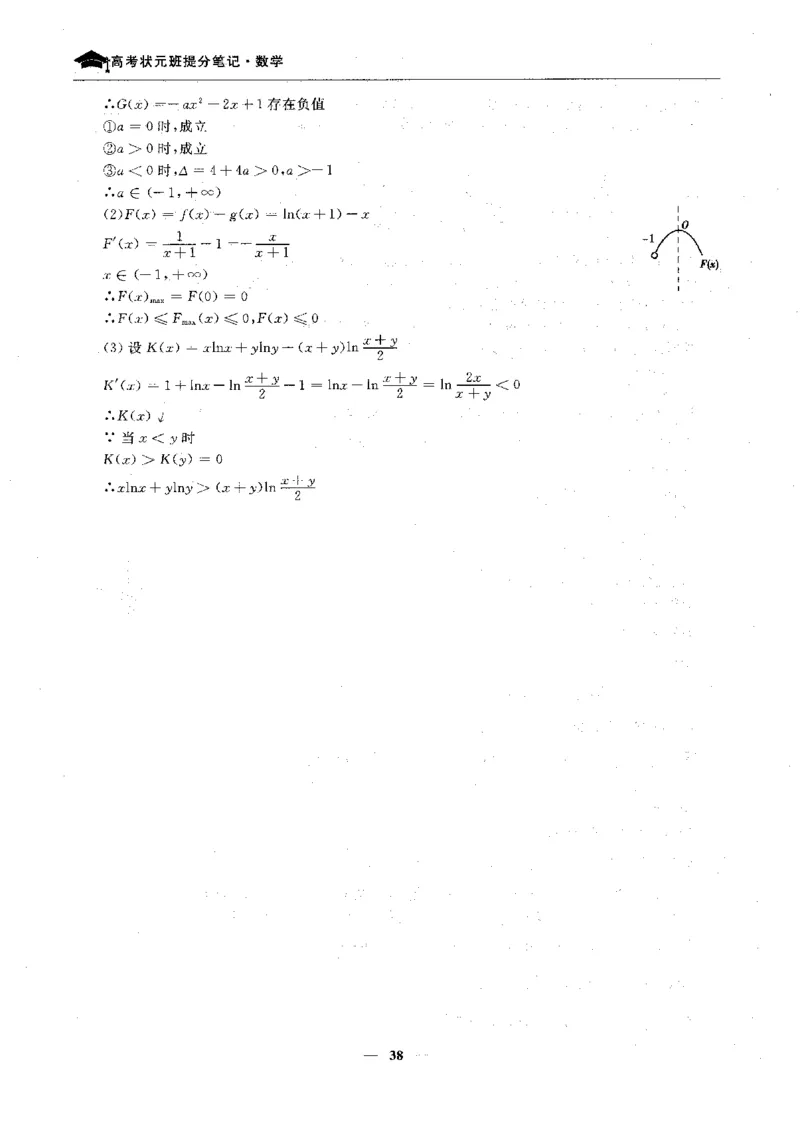 高考状元班提分笔记·数学
∴G(x) = -ax² - 2x + 1 存在负值
①a = 0 时,成立
②a > 0 时,成立
③a < 0 时,Δ = 4 + 4a > 0,a > -1
∴a ∈ (-1, +∞)
(2)F(x) = f(x) - g(x) = ln(x + 1) - x
F′(x) = 1/(x+1) - 1 = - x/(x+1)
x ∈ (-1, +∞)
∴F(x)max = F(0) = 0
∴F(x) ≤ Fmax(x) ≤ 0,F(x) ≤ 0
O
-1
F(x)
(3) 设 K(x) = xlnx + ylny - (x + y)ln (x+y)/2
K′(x) = 1 + lnx - ln (x+y)/2 - 1 = lnx - ln (x+y)/2 = ln 2x/(x+y) < 0
∴K(x) ↓
∵ 当 x < y 时
K(x) > K(y) = 0
∴xlnx + ylny > (x + y)ln (x+y)/2
— 38